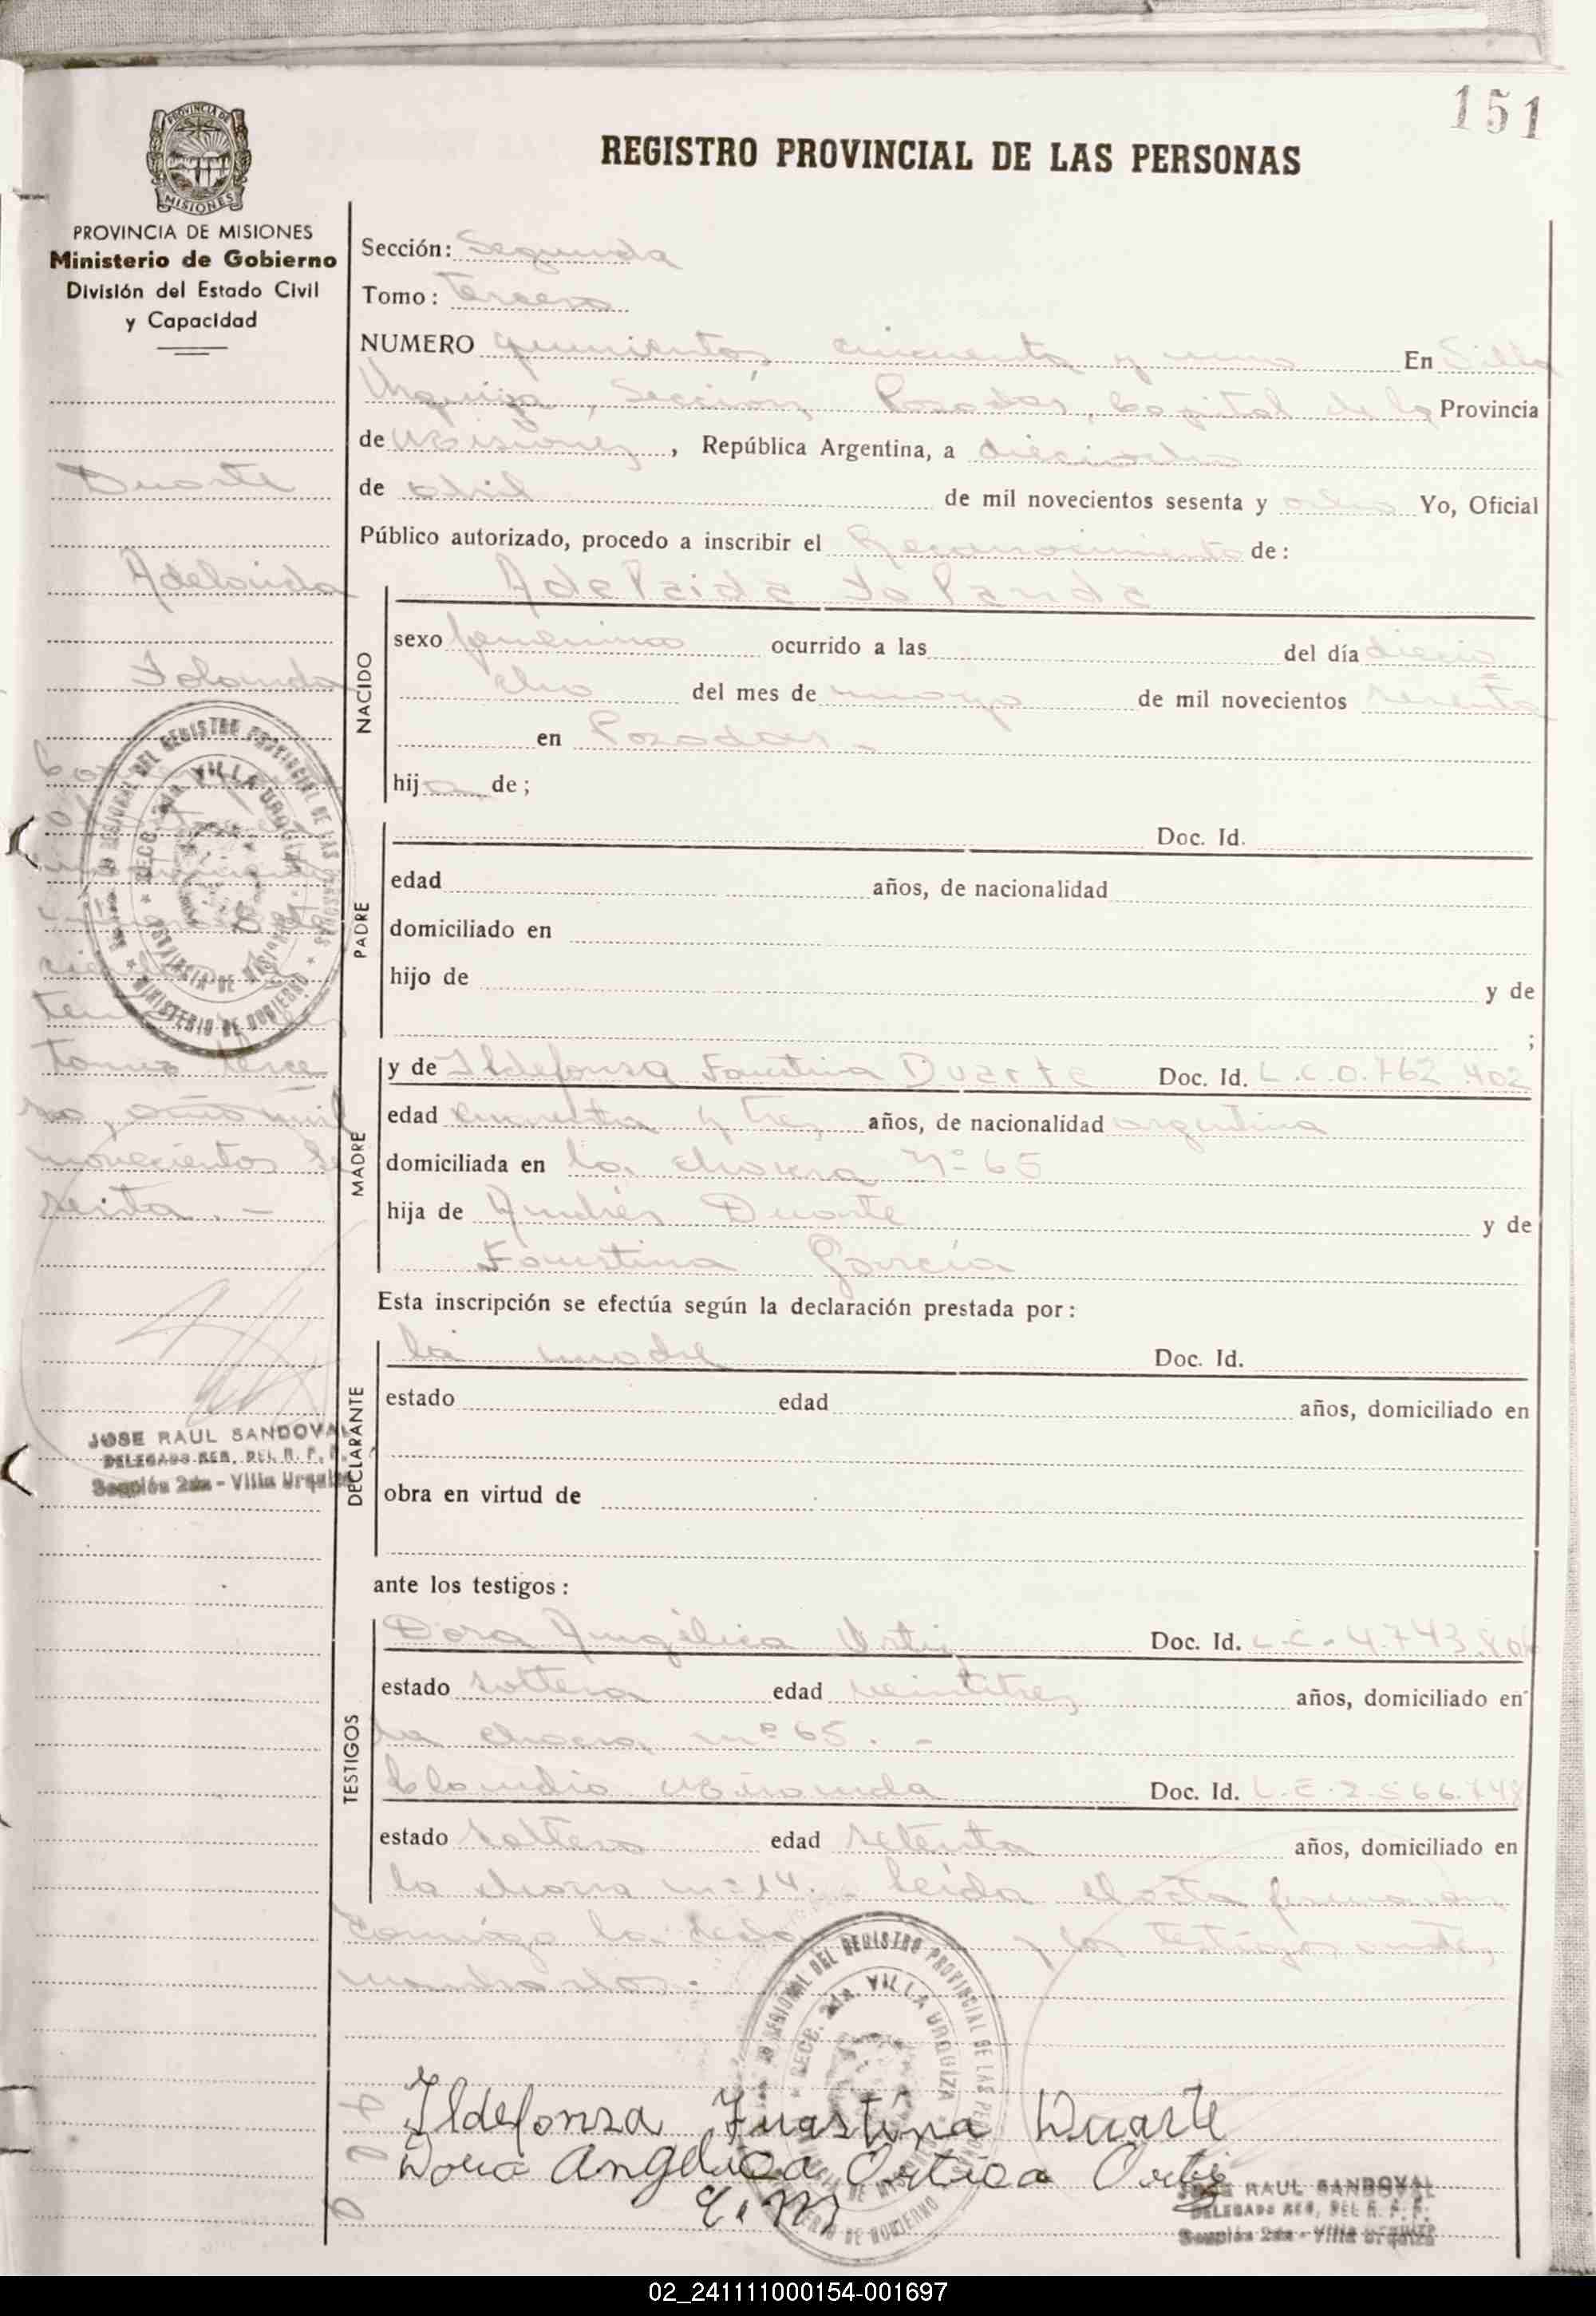 151
REGISTRO PROVINCIAL DE LAS PERSONAS
PROVINCIA DE MISIONES
Ministerio de Gobierno
División del Estado Civil
y Capacidad
Duarte
Adelaida
Iolanda
tomo terce
ro, año mil
novecientos se
senta. -
JOSE RAUL SANDOVAL
DELEGADO REG. DEL R. P. P.
Sección 2da - Villa Urquiza
Sección: Segunda
Tomo: Tercero
NUMERO quinientos cincuenta y uno En Villa
Urquiza, Sección, Posadas, Capital de la Provincia
de Misiones, República Argentina, a dieciocho
de abril de mil novecientos sesenta y ocho Yo, Oficial
Público autorizado, procedo a inscribir el Reconocimiento de:
Adelaida Iolanda
NACIDO
sexo femenino ocurrido a las del día diecio
cho del mes de mayo de mil novecientos sesenta
en Posadas. -
hija de;
PADRE
Doc. Id.
edad años, de nacionalidad
domiciliado en
hijo de y de
;
MADRE
y de Ildefonsa Faustina Duarte Doc. Id. L.C.0.762.402
edad cuarenta y tres años, de nacionalidad argentina
domiciliada en la chacra Nº 65
hija de Andrés Duarte y de
Faustina García
Esta inscripción se efectúa según la declaración prestada por:
DECLARANTE
la madre Doc. Id.
estado edad años, domiciliado en
obra en virtud de
ante los testigos:
TESTIGOS
Dora Angélica Ortiz Doc. Id. L.C. 4.743.80
estado soltera edad veintitres años, domiciliado en
la chacra nº 65. -
Claudio Miranda Doc. Id. L.E. 2.566.748
estado soltero edad setenta años, domiciliado en
la chacra nº 14. - Leída el acta firman
conmigo la y los testigos ante,
Ildefonsa Fuastina Duarte
Dora Angelica Ortiz
C. M
JOSE RAUL SANDOVAL
DELEGADO REG. DEL R. P. P.
Sección 2da - Villa Urquiza
02_241111000154-001697